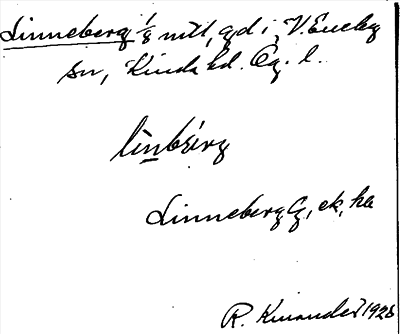 Linneberg 1/8 mtl, gd i V. Eneby
sn, Kinda hd. Ög. l.
linbærg
Linneberg G, ek, ha
R. Kinander 1928